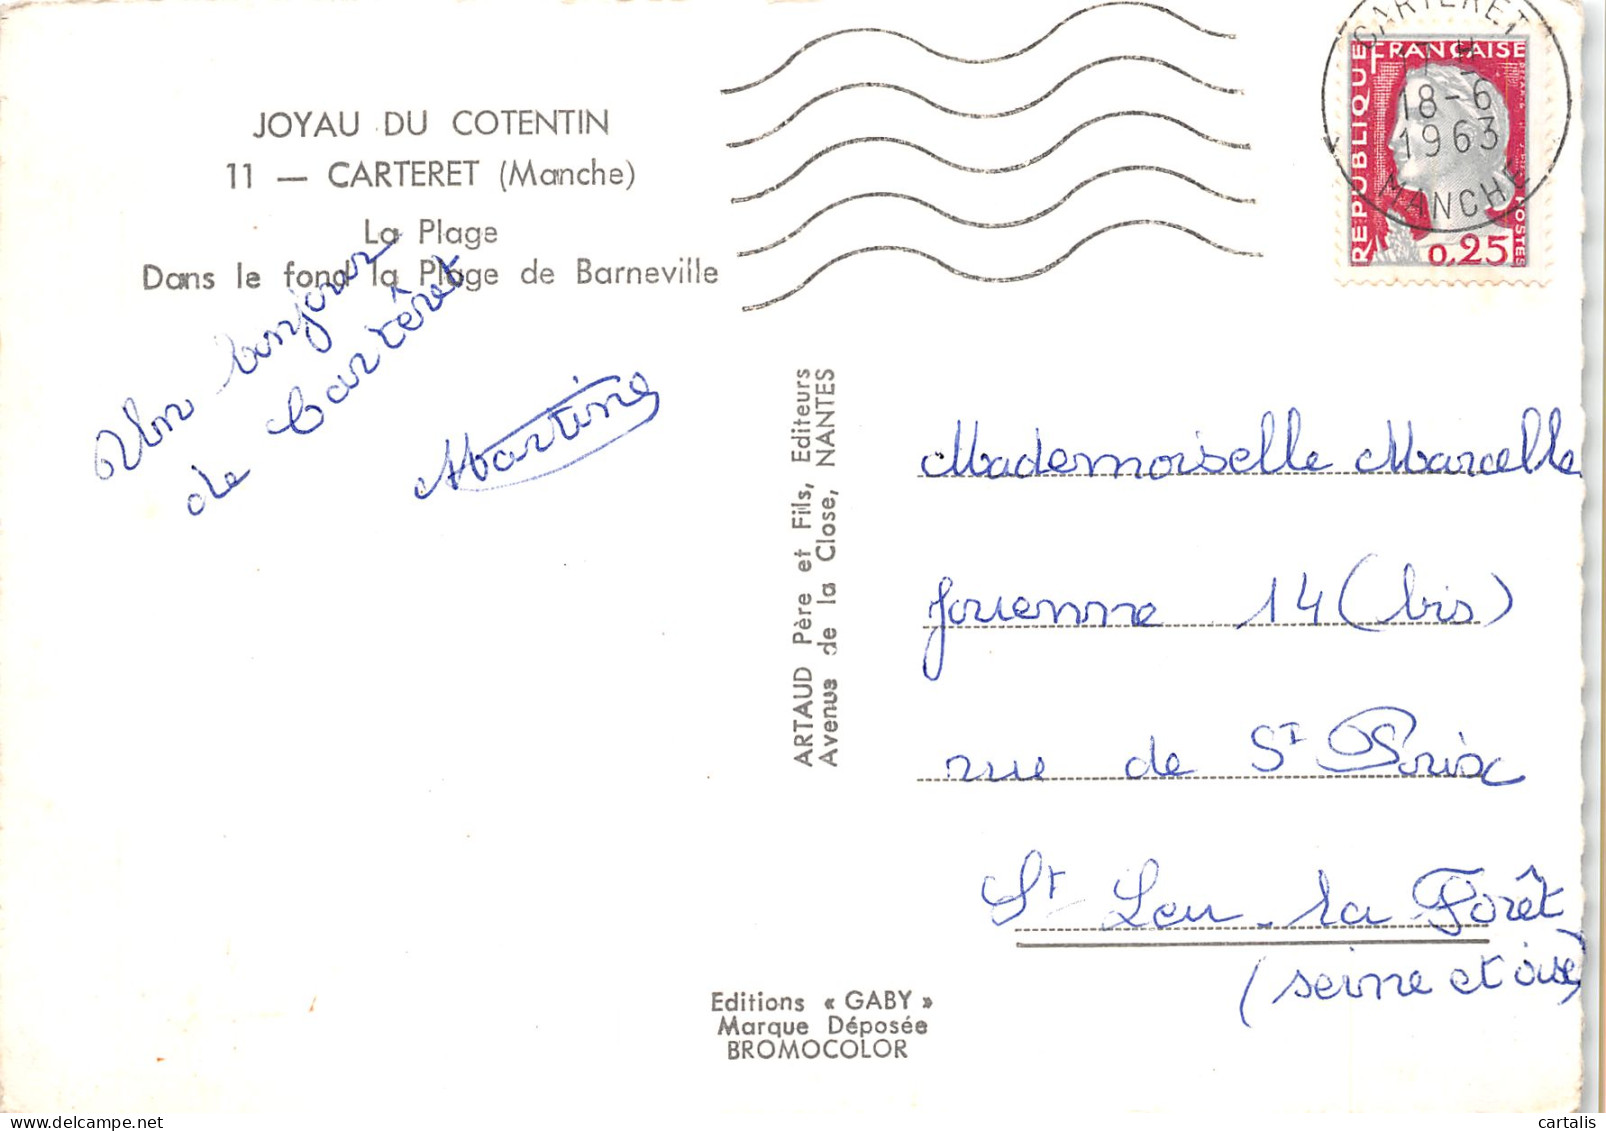 JOYAU DU COTENTIN
11 — CARTERET (Manche)
La Plage
Dans le fond la Plage de Barneville
Un bonjour
de Cartêret
Martine
ARTAUD Père et Fils, Editeurs
Avenue de la Close, NANTES
Editions « GABY »
Marque Déposée
BROMOCOLOR
CARTERET
17 H
18-6
1963
MANCHE
REPUBLIQUE FRANÇAISE
0,25
POSTES
Mademoiselle Marcelle
Jouenne 14 (bis)
rue de St Prix
St Leu-la Forêt
(seine et oise)
cartalis